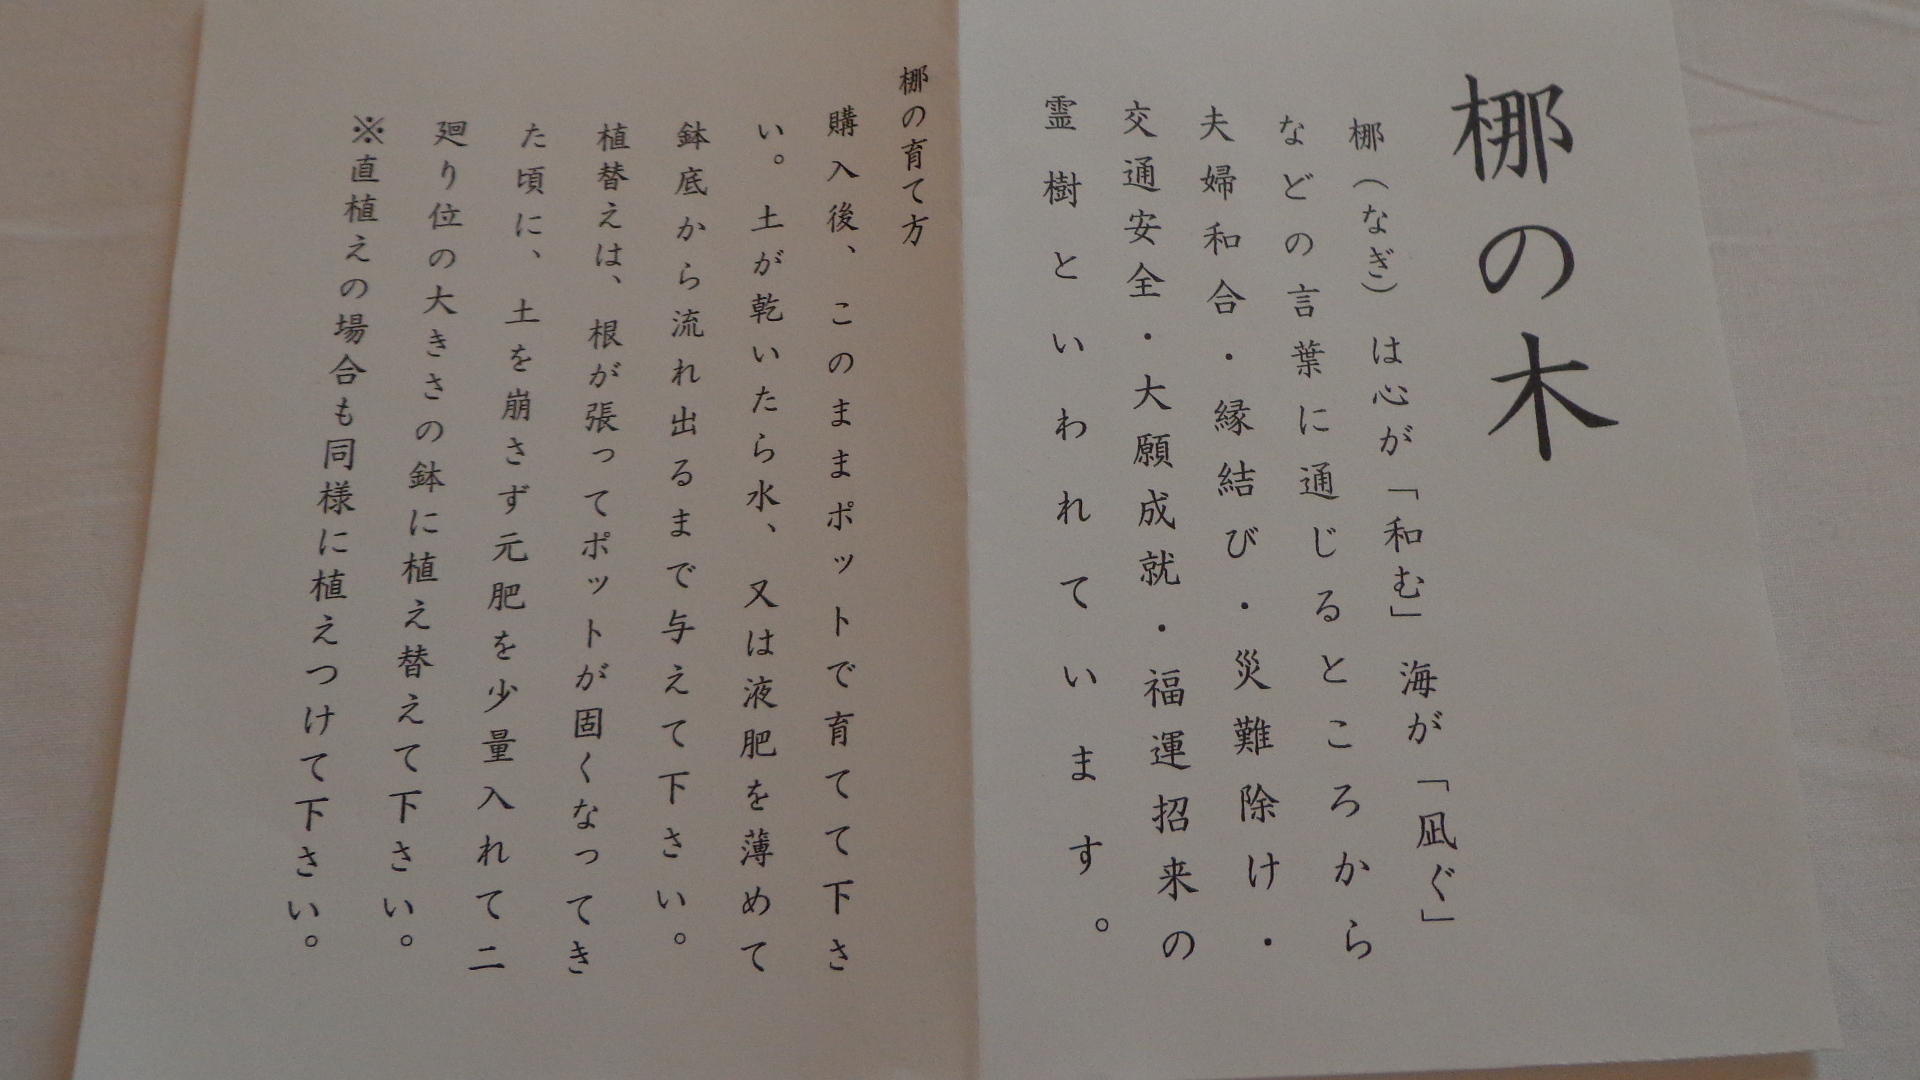 梛の木
梛（なぎ）は心が「和む」海が「凪ぐ」
などの言葉に通じるところから
夫婦和合・縁結び・災難除け・
交通安全・大願成就・福運招来の
霊樹といわれています。
梛の育て方
購入後、このままポットで育てて下さ
い。土が乾いたら水、又は液肥を薄めて
鉢底から流れ出るまで与えて下さい。
植替えは、根が張ってポットが固くなってき
た頃に、土を崩さず元肥を少量入れて二
廻り位の大きさの鉢に植え替えて下さい。
※直植えの場合も同様に植えつけて下さい。